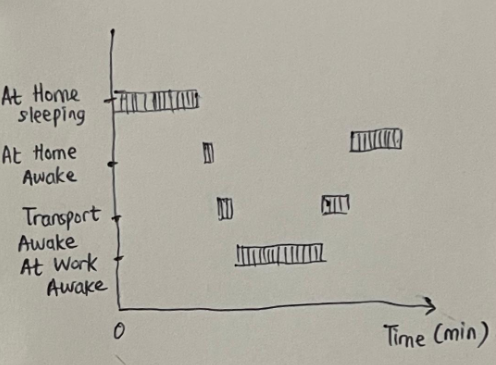 At Home
sleeping
At Home
Awake
Transport
Awake
At Work
Awake
0
Time (min)